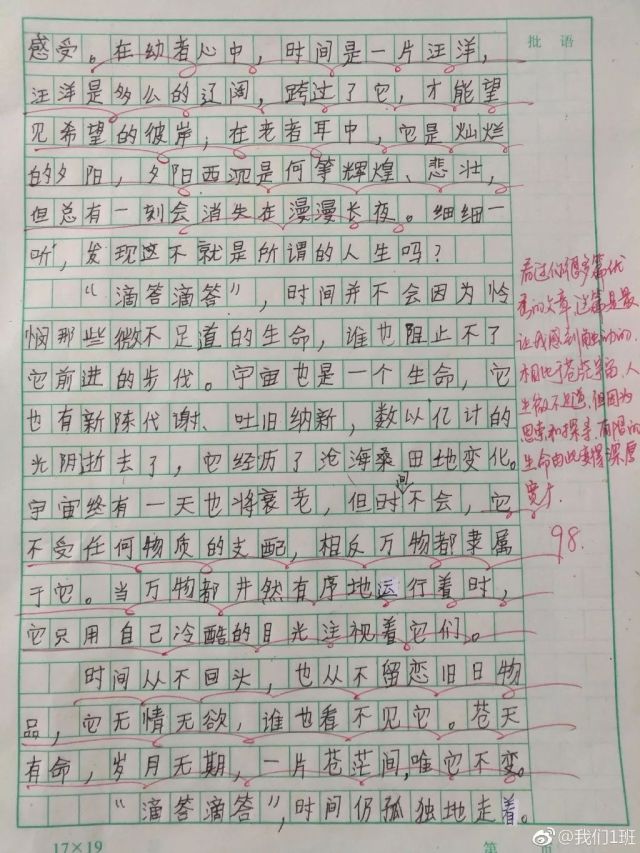 批语
感受。在幼者心中，时间是一片汪洋，
汪洋是多么的辽阔，跨过了它，才能望
见希望的彼岸；在老者耳中，它是灿烂
的夕阳，夕阳西沉是何等辉煌、悲壮，
但总有一刻会消失在漫漫长夜。细细一
听，发现这不就是所谓的人生吗？
“滴答滴答”，时间并不会因为怜
悯那些微不足道的生命，谁也阻止不了
它前进的步伐。宇宙也是一个生命，它
也有新陈代谢、吐旧纳新，数以亿计的
光阴逝去了，它经历了沧海桑田地变化。
宇宙终有一天也将衰老，但时间不会，它
不受任何物质的支配，相反万物都隶属
于它。当万物都井然有序地运行着时，
它只用自己冷酷的目光注视着它们。
时间从不回头，也从不留恋旧日物
品，它无情无欲，谁也看不见它。苍天
有命，岁月无期，一片苍茫间，唯它不变。
“滴答滴答”，时间仍孤独地走着。
看过你很多篇优
秀的文章，这篇是最
让我感到触动的.
相比于苍茫宇宙，人
生微不足道，但因为
思索和探寻，有限的
生命由此变得深厚
宽大.
98.
17×19
第 页
@我们1班